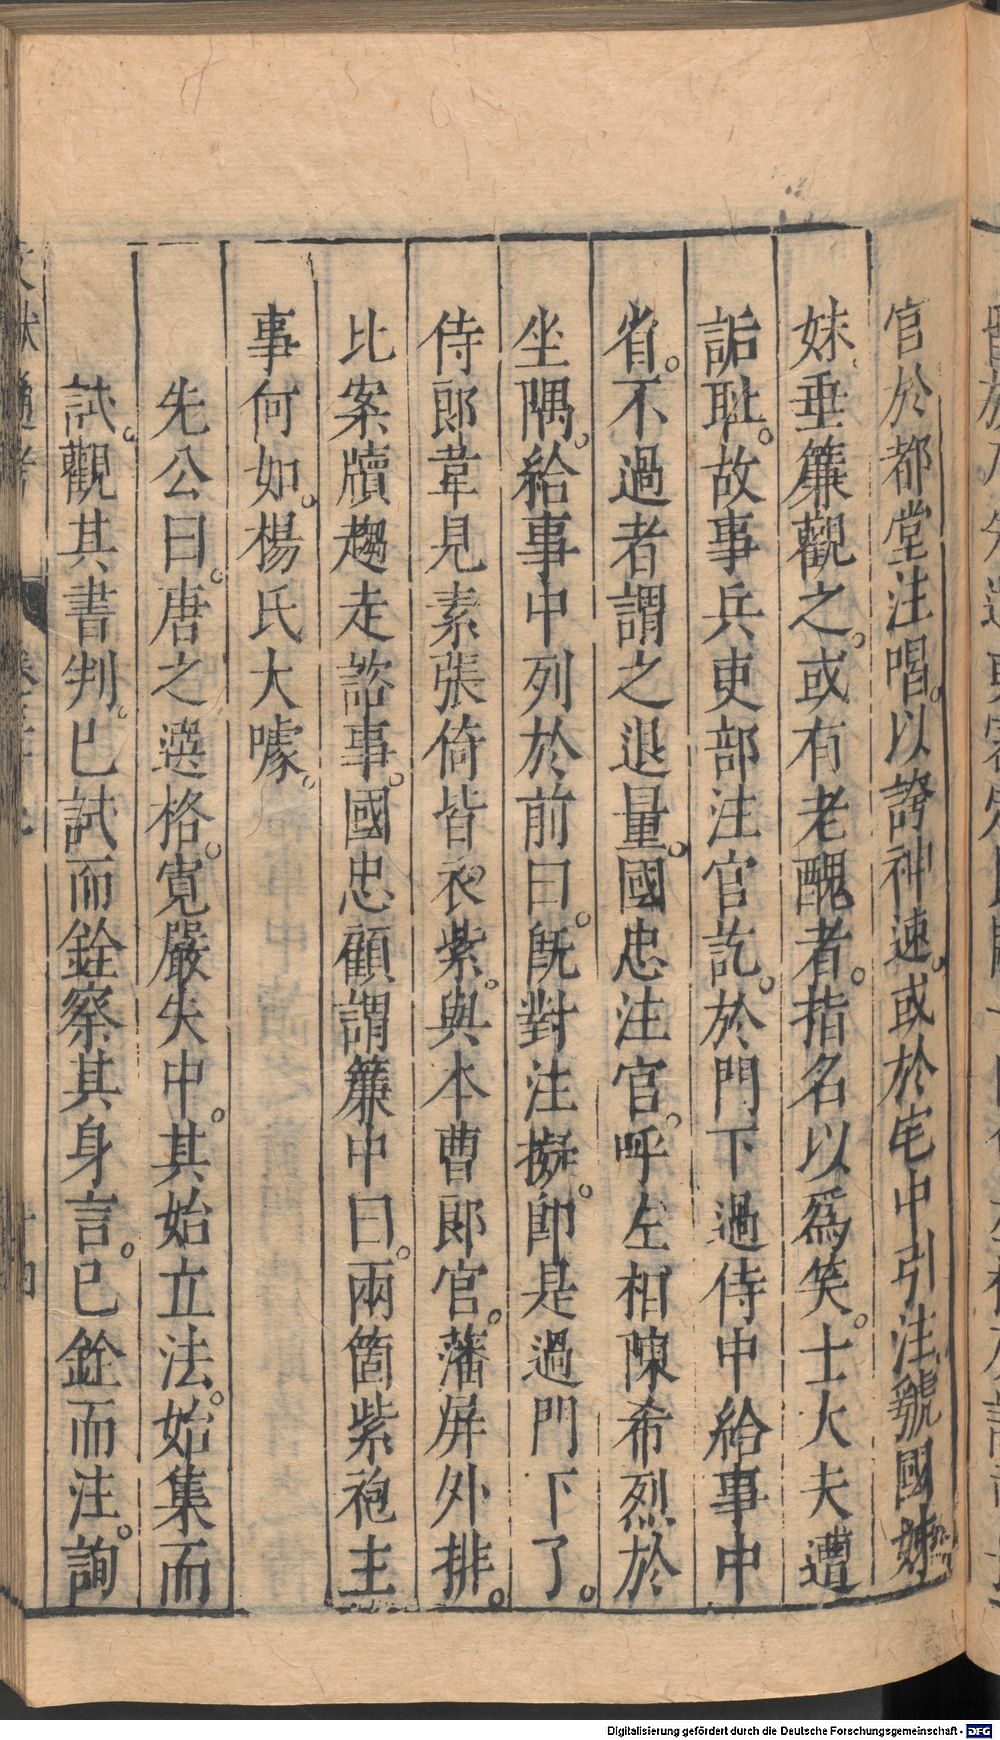 官於都堂注唱。以誇神速。或於宅中引注。虢國姊
妹垂簾觀之。或有老醜者。指名以爲笑。士大夫遭
詬耻。故事兵吏部注官訖。於門下過侍中給事中
省。不過者謂之退量。國忠注官。呼左相陳希烈於
坐隅。給事中列於前曰。既對注擬。卽是過門下了。
侍郎韋見素張倚皆衣紫。與本曹郎官。藩屏外排。
比案牘趨走諮事。國忠顧謂簾中曰。兩箇紫袍主
事何如。楊氏大噱。
先公曰。唐之選格。寛嚴失中。其始立法。始集而
試。觀其書判。已試而銓察其身言。已銓而注。詢
文獻通考
Digitalisierung gefördert durch die Deutsche Forschungsgemeinschaft - DFG